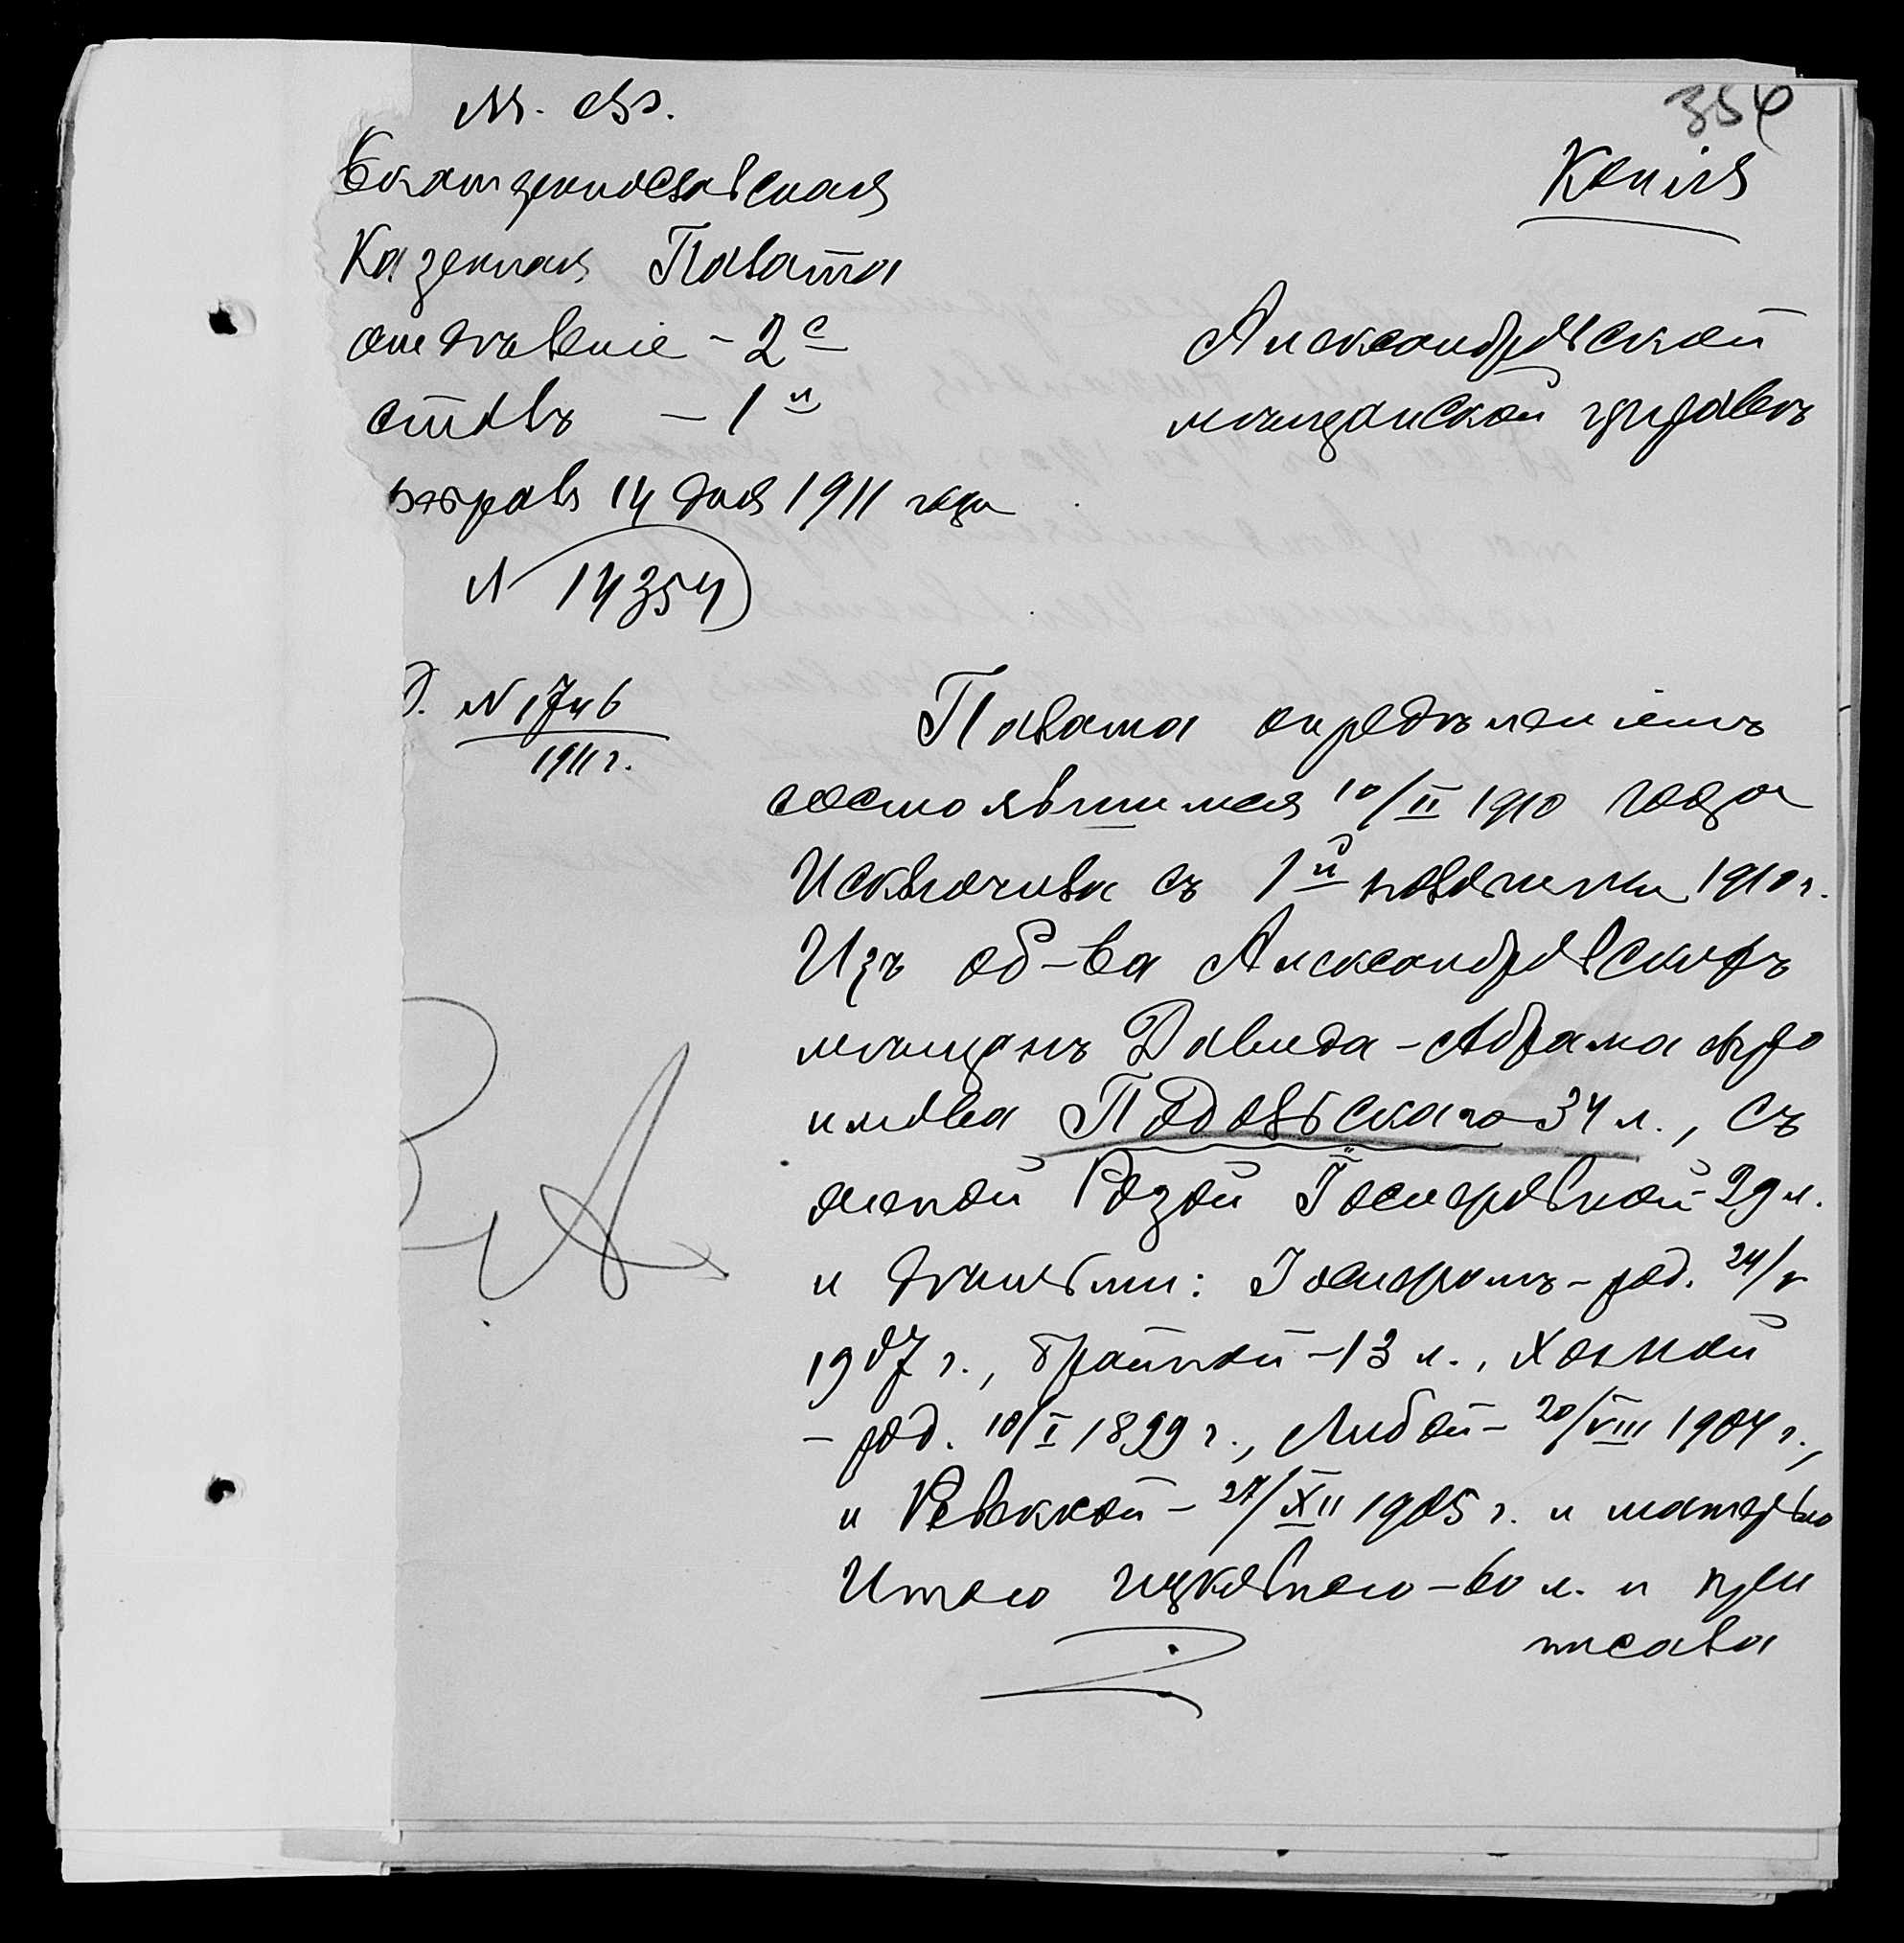 М. Ф.
Екатеринославская
Казенная Палата
отдѣленіе – 2е
столъ – 1й
февраля 14 дня 1911 года
N 14354
Д. N 1746
1911 г.
354
Копія
Александровской
мѣщанской управѣ
Палата опредѣленіемъ
состоявшимся 10/II 1910 года
Исключила съ 1й половины 1910 г.
Изъ об-ва Александровскихъ
мѣщанъ Давида-Абрама
Подольскаго 34 л., съ
женой Розой Іосифовной – 29 л.
и дѣтьми: Іосифомъ – род. 24/V
1907 г., Брайной – 13 л., Ханой
– род. 10/I 1899 г., Либой – 20/VIII 1904 г.,
и Ревеккой – 27/XII 1905 г. и матерью
– 60 л. и при
писала